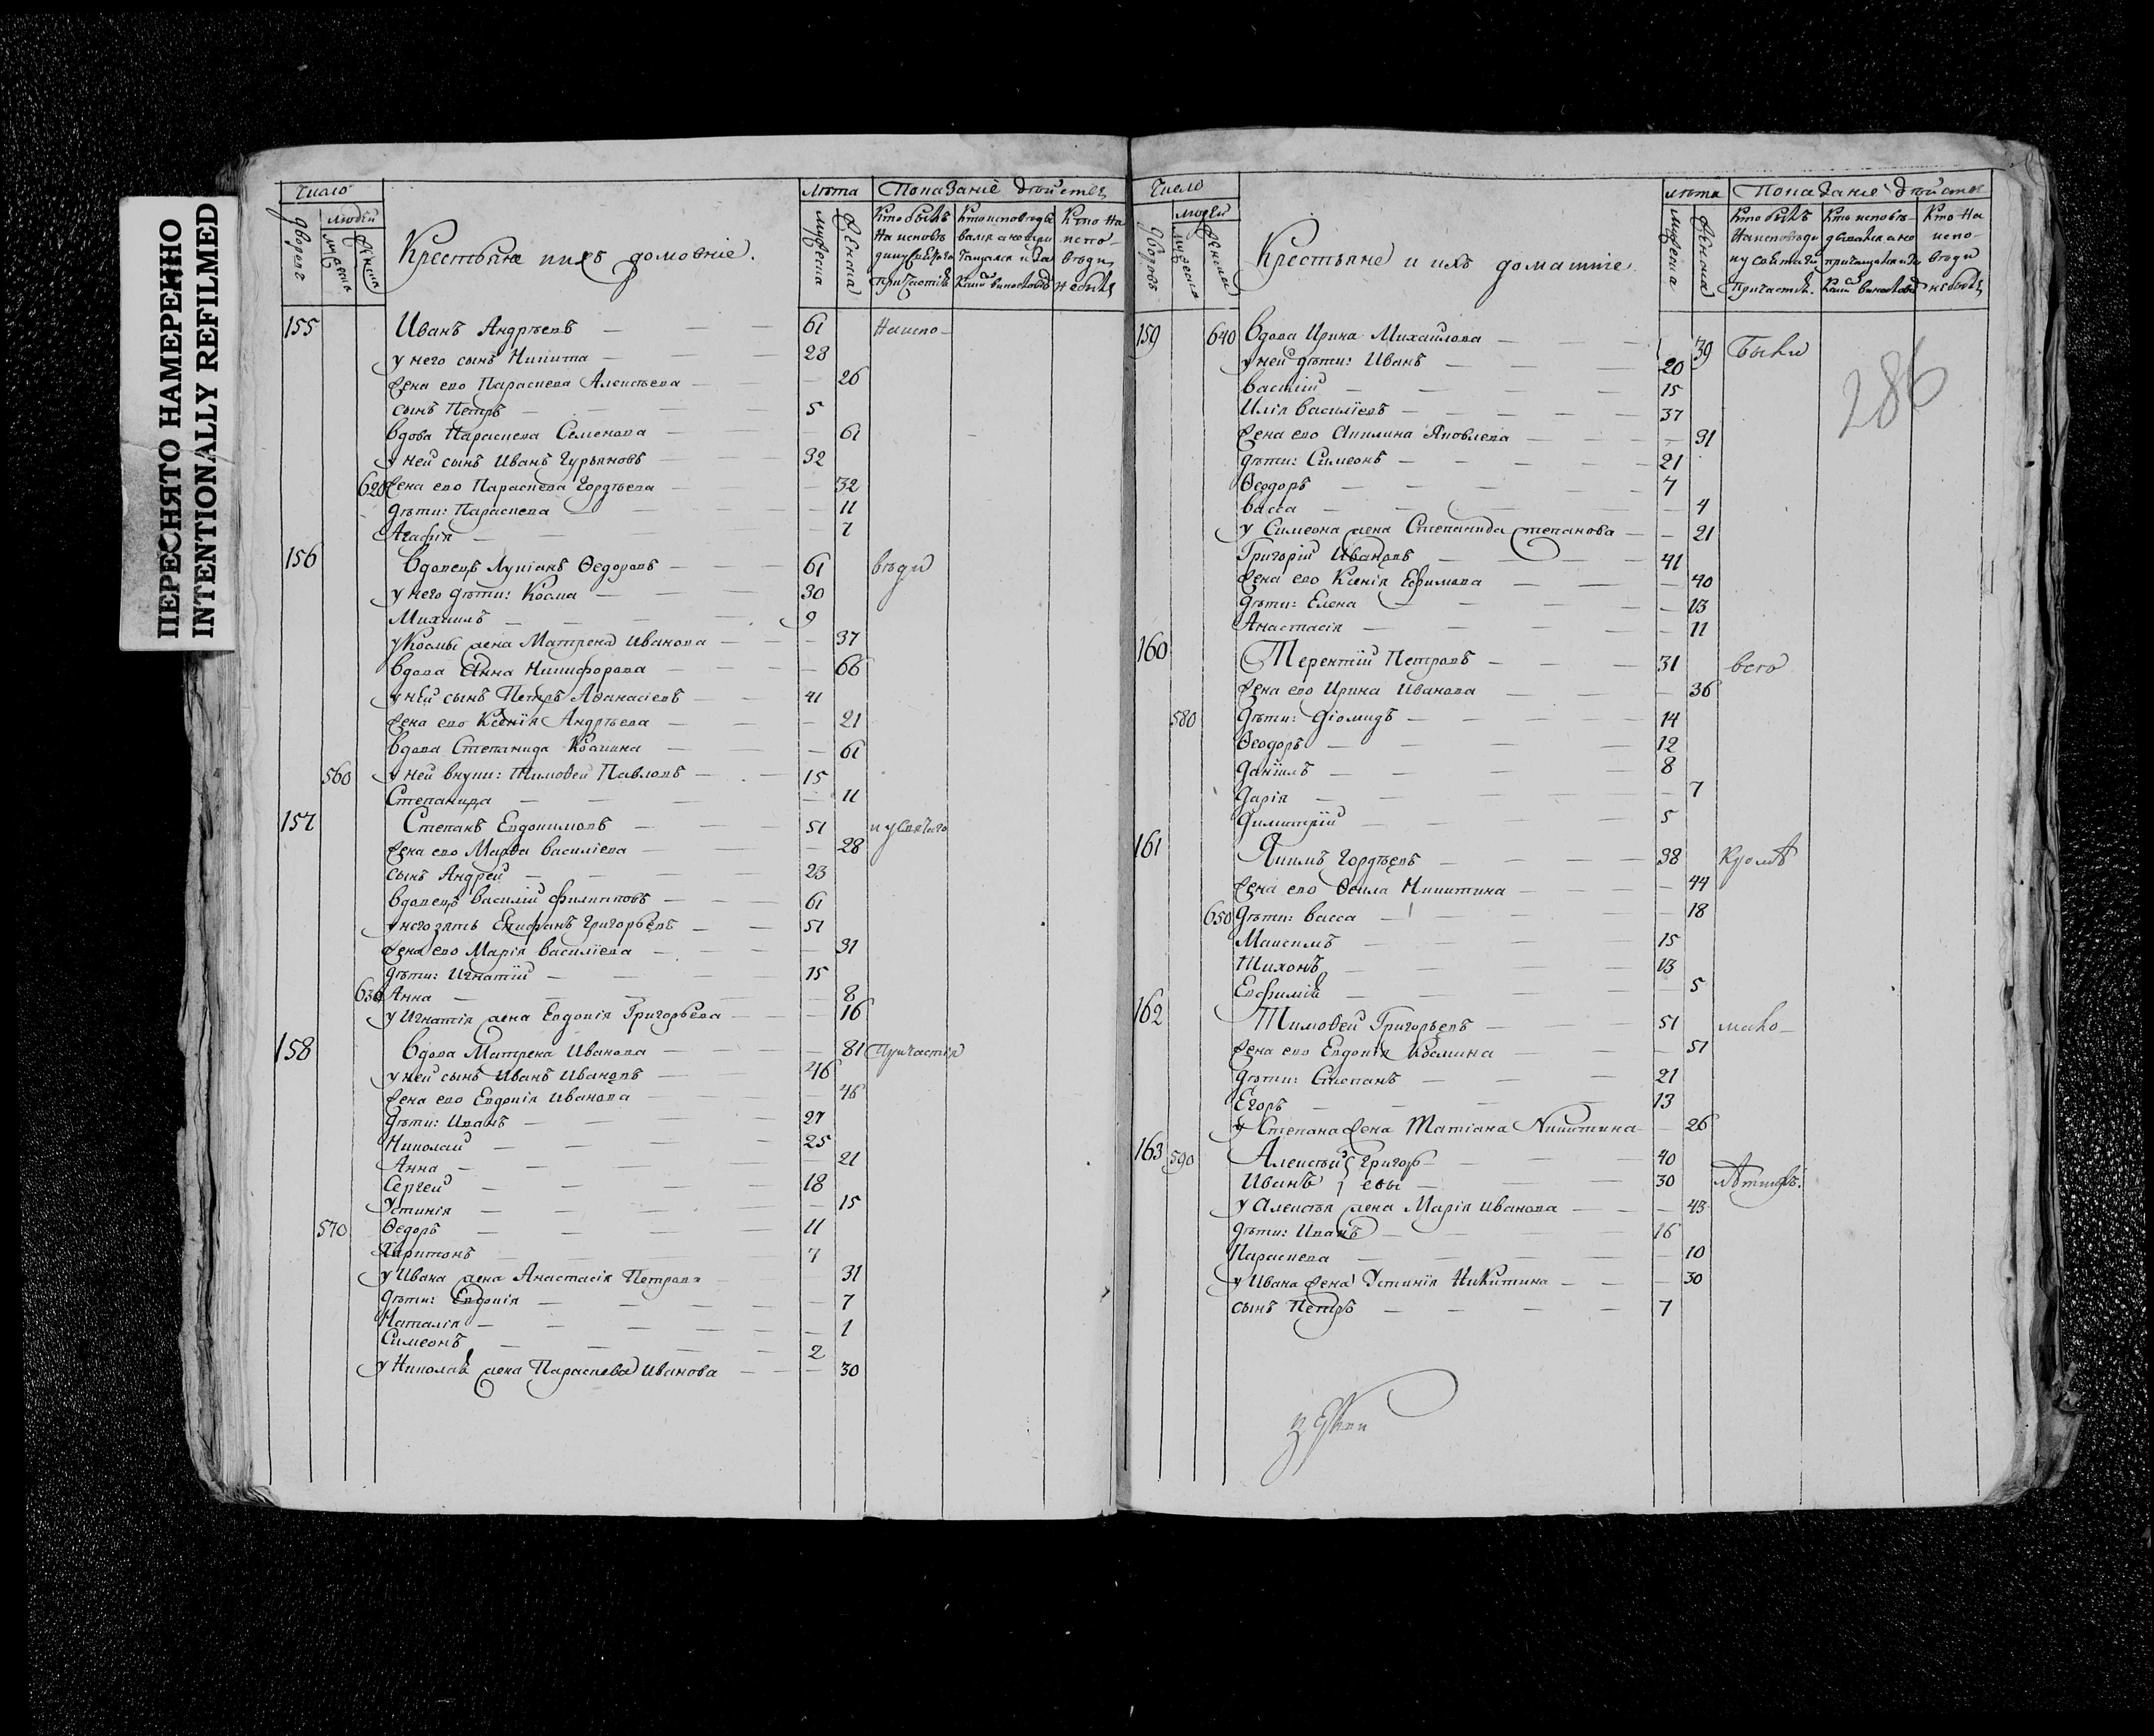 ПЕРЕСНЯТО НАМЕРЕННО
INTENTIONALLY REFILMED
Число
Лѣта
Показаніе дѣйства
дворовъ
людей
мужеска
женска
Крестьяне и ихъ домовніе.
мужеска
женска
Кто былъ на исповѣди и у святаго причастія
Кто исповѣдывался а не причащался и за какой виною
Кто на исповѣди не былъ
155 Иванъ Андрѣевъ — 61 На испо-
у него сынъ Никита — 28
жена ево Параскева Алексѣева — 26
сынъ Петръ — 5
вдова Параскева Семенова — 61
у ней сынъ Иванъ Гурьяновъ — 32
620 жена ево Параскева Гордѣева — 32
дѣти: Параскева — 11
Агафія — 7
156 Вдовецъ Лукіанъ Ѳедоровъ — 61 вѣди
у него дѣти: Козма — 30
Михаилъ — 9
у Козмы жена Матрена Иванова — 37
вдова Анна Никифорова — 66
у ней сынъ Петръ Аѳанасіевъ — 41
жена ево Ксенія Андрѣева — 21
вдова Степанида Козмина — 61
560 у ней внуки: Тимоѳей Павловъ — 15
Степанида — 11
157 Степанъ Евдокимовъ — 51 и у святаго
жена ево Марѳа Василіева — 28
сынъ Андрей — 23
вдовецъ Василій Филипповъ — 61
у него зять Епифанъ Григорьевъ — 51
жена ево Марія Василіева — 31
дѣти: Игнатій — 15
630 Анна — 8
у Игнатія жена Евдокія Григорьева — 16
158 Вдова Матрена Иванова — 81 Причастія
у ней сынъ Иванъ Ивановъ — 46
жена ево Евдокія Иванова — 46
дѣти: Иванъ — 27
Николай — 25
Анна — 21
Сергей — 18
Устинія — 15
570 Ѳедоръ — 11
Харитонъ — 7
у Ивана жена Анастасія Петрова 31
дѣти: Евдокія — 7
Наталія — 1
Симеонъ — 2
у Николая жена Параскева Иванова — 30
Число
лѣта
Показаніе дѣйства
дворовъ
людей
мужеска
женска
Крестьяне и ихъ домашніе
мужеска
женска
Кто былъ на исповѣди и у святаго причастія.
Кто исповѣдывался а не причащался и за какой виною
Кто на исповѣди не былъ
286
159 640 Вдова Ирина Михайлова — 39 Были
у ней дѣти: Иванъ — 20
Василій — 15
Илія Василіевъ — 37
жена ево Акилина Яковлева — 31
дѣти: Симеонъ — 21
Ѳеодоръ — 7
Васса — 4
у Симеона жена Степанида Степанова — 21
Григорій Ивановъ — 41
жена ево Ксенія Ефимова — 40
дѣти: Елена — 13
Анастасія — 11
160 Терентій Петровъ — 31 всего
жена ево Ирина Иванова — 36
580 дѣти: Діомидъ — 14
Ѳеодоръ — 12
Даніилъ — 8
Дарія — 7
Димитрій — 5
161 Якимъ Гордѣевъ — 38 Кромѣ
жена ево Ѳекла Никитина — 44
650 дѣти: Васса — 18
Максимъ — 15
Тихонъ — 13
Евфимія — 5
162 Тимоѳей Григорьевъ — 51 мало-
жена ево Евдокія Козмина — 51
дѣти: Степанъ — 21
Егоръ — 13
у Степана жена Татіана Никитина — 26
163 590 Алексѣй } Григорь- 40
Иванъ } евы — 30 лѣтнихъ.
у Алексѣя жена Марія Иванова — 43
дѣти: Иванъ — 16
Параскева — 10
у Ивана жена Устинія Никитина — 30
сынъ Петръ — 7